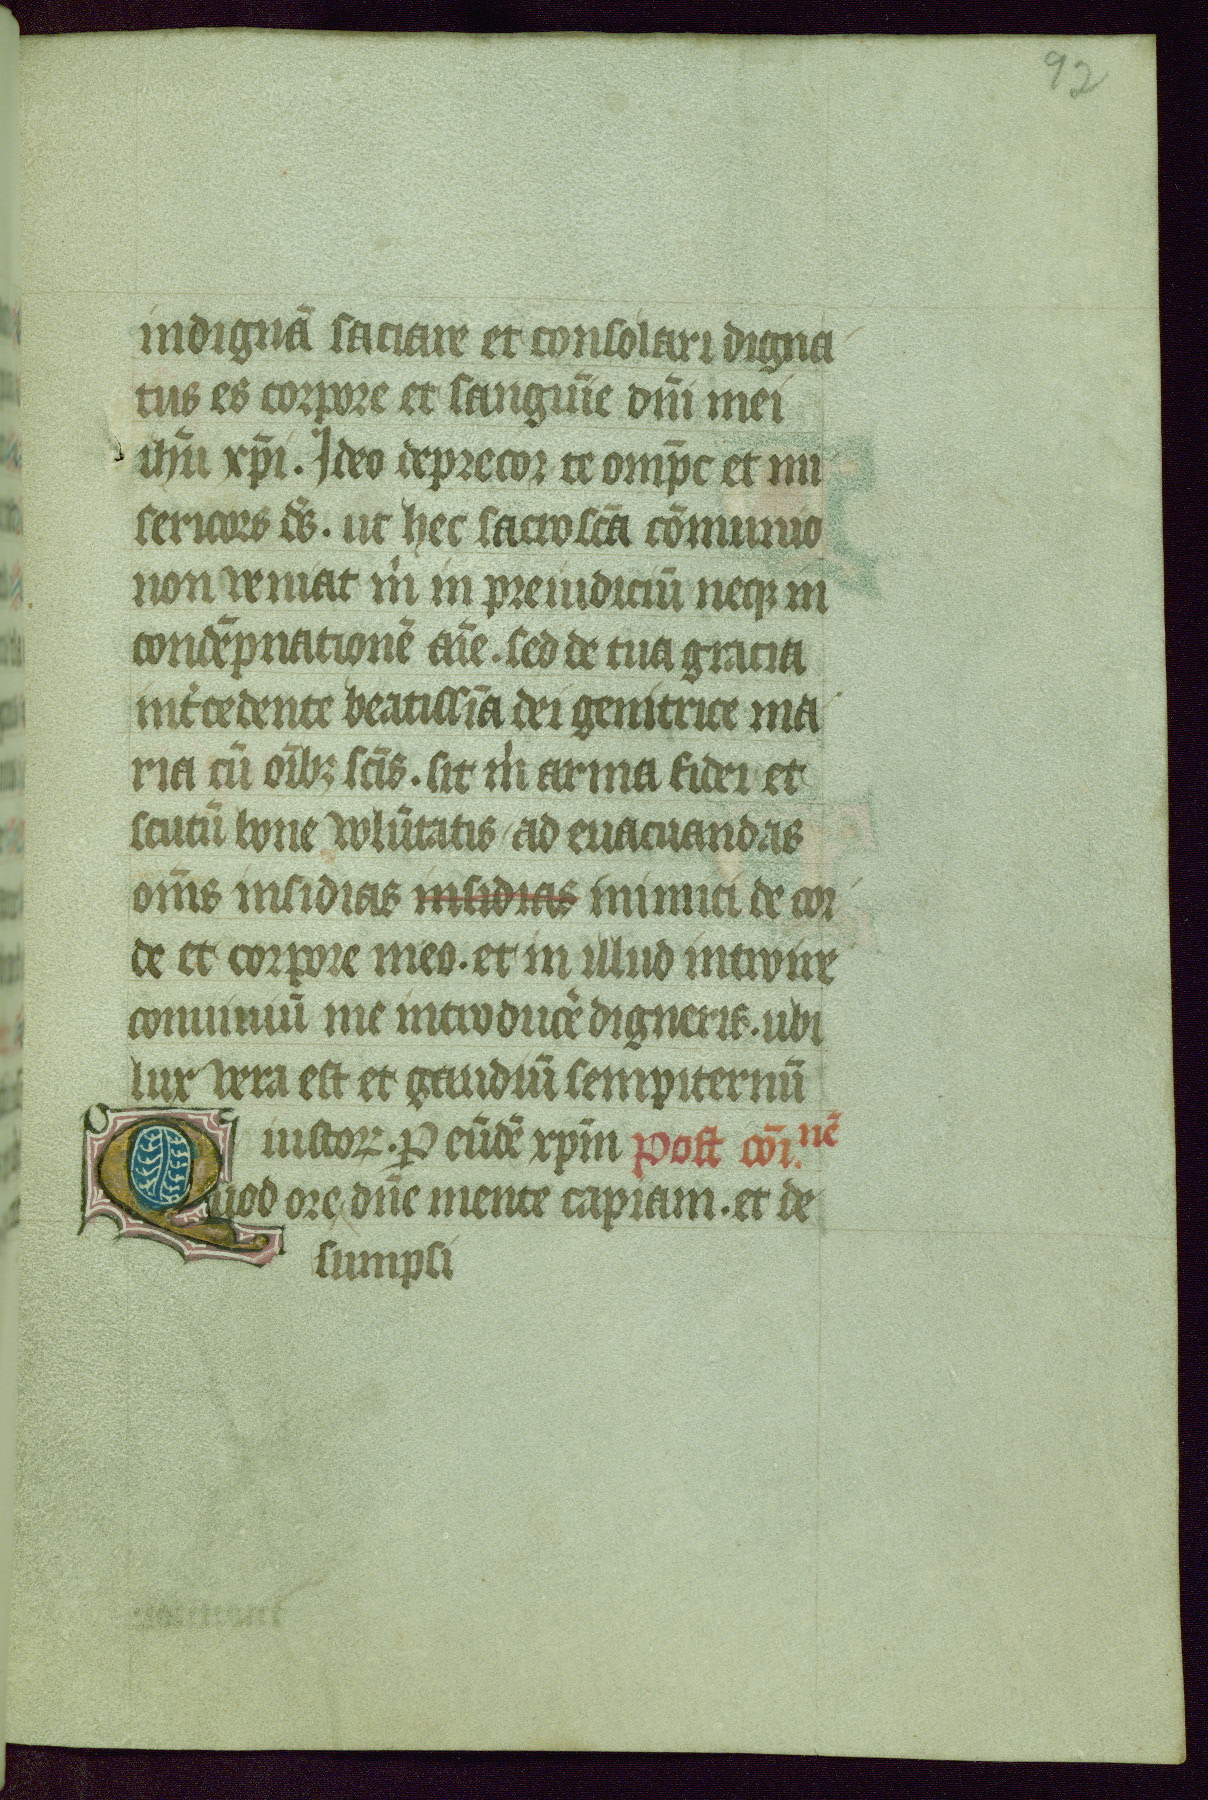 92
indignā saciare et consolari digna
tus es corpore et sanguīe dn̄i mei
ihū xp̄i. Ideo deprecor te omp̄c et mi
sericors ds̄. ut hec sacrosc̄a cōmunio
non veniat m̄ in preiudiciū neqꝫ in
condēpnationē aīe. sed de tua gracia
int̄cedente beatissīa dei genitrice ma
ria cū oībꝫ sc̄is. sit m̄ arma fidei et
scutū bone volūtatis ad euacuandas
om̄s insidias insidias inimici de cor
de et corpore meo. et in illud introire
conuiuiū me introducē digneris. ubi
lux vera est et gaudiū sempiternū
iustoꝝ. P eūdē xpm̄ Post cōi.nē
Quod ore dn̄e mente capiam. et de
sumpsi